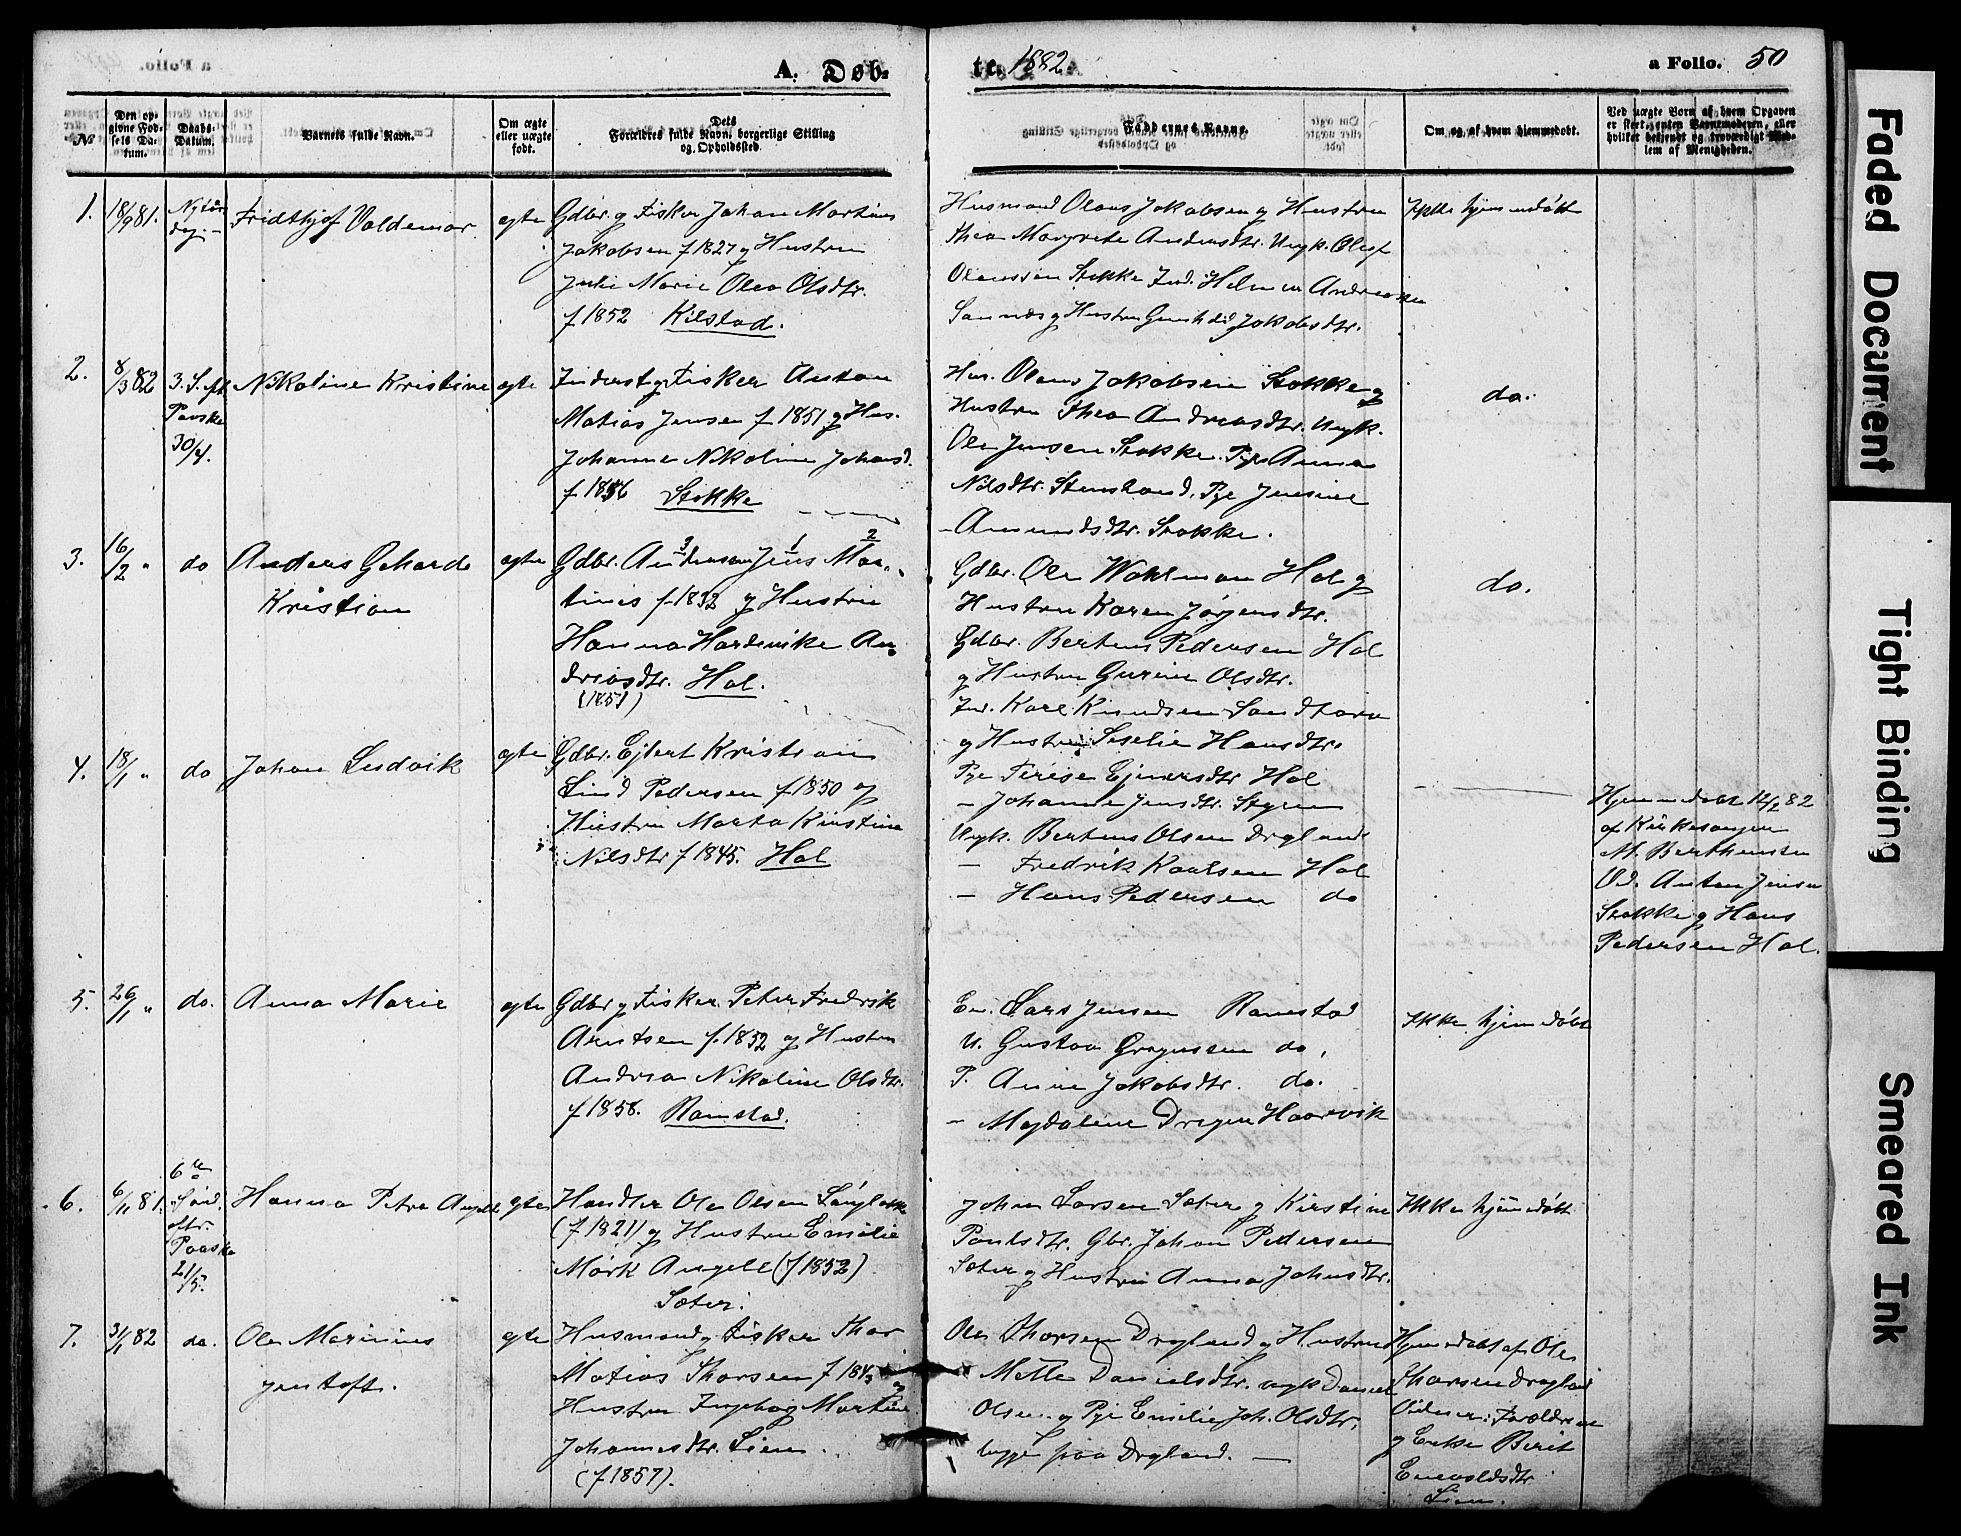 A. Døb-
te. 1882
a Folio. 50
№
Den op-
givne Fød-
sels Da-
tum.
Daabs-
Datum.
Barnets fulde Navn.
Om ægte
eller uægte
født.
Dets
Forældres fulde Navn, borgerlige Stilling
og Opholdssted.
Faddernes Navne.
Om og af hvem hjemmedøbt.
Ved uægte Børn af hvem Opgaven
er skeet, enten Barnemoderen, eller
hvilket bekjendt og troværdigt Med-
lem af Menigheden.
1. 18/9 81. Nytårs
dag. Fridthjof Valdemar ægte
Gdbr. og Fisker Johan Martines
Jakobsen f 1827 og Hustru
Julie Marie Olea Olsdtr.
f 1852 Kilstad.
Husmand Olaus Jakobsen og Hustru
Thea Margrete Andersdtr. Ungk. Oluf
Olaussen Stokke Ind. Helmer Andreassen
Sannes og Hustru Gunhild Jakobsdtr.
Ikke hjemmedøbt
2. 8/3 82 3. S. eft.
Paaske
30/4. Nikoline Kristine ægte
Inderst og Fisker Anton
Matias Jensen f 1851 og Hus.
Johanne Nikoline Johansd.
f 1856 Stokke
Hus. Olaus Jakobsen Stokke og
Hustru Thea Andreasdtr. Ungk.
Ole Jensen Stokke. Pge Anna
Nilsdtr. Stensland, Pge Jensine
Amundsdtr. Stokke.
do.
3. 16/2 " do Anders Gehard
Kristian ægte
Gdbr. Andersen Jens Mar-
3 1 2
tines f 1832 og Hustru
Hanna Hardevike An-
dreasdtr. Hol.
(1851)
Gdbr. Ole Wohlman Hol og
Hustru Karen Jørgensdtr.
Gdbr. Bertens Pedersen Hol
og Hustru Gurine Olsdtr.
Ind. Karl Knudsen Sandtorv
og Hustru Seselie Hansdtr.
do.
4. 18/1 " do Johan Ludvik ægte
Gdbr. Ejlert Kristian
Lind Pedersen f 1850 og
Hustru Marta Kirstine
Nilsdtr f 1845. Hol
Pge Terese Ejnersdtr Hol
- Johanna Jensdtr. Styren
Ungk. Bertens Olsen Drgland
- Fredrik Karlsen Hol
- Hans Pedersen do
Hjemmedøbt 12/2 82
af Kirkesanger
M. Berthensen
Vid. Anton Jensen
Stokke og Hans
Pedersen Hol.
5. 26/1 " do. Anna Marie ægte
Gdbr og Fisker Peter Fredrik
Arntsen f. 1852 og Hustru
Andrea Nikoline Olsdtr.
f 1858. Ramstad.
En. Lars Jensen Ramstad
U. Gustav Gregussen do,
P. Anne Jakobsdtr. do.
- Magdalene Dreyer Haarvik
Ikke hjemmedøbt
6. 6/11 81. 6te
Sønd.
eftr.
Paaske
21/5. Hanna Petra Angell ægte
Handler Ole Olsen Langbakk
(f 1821) og Hustru Emilie
Mørk Angell (f 1852)
Sæter.
Johan Larsen Sæter og Kirstine
Paulsdtr. Gbr. Johan Pedersen
Sæter og Hustru Anna Johnsdtr.
Ikke hjemmedøbt
7. 31/1 82 do. Ole Marinius
Jentoft. ægte
Husmand og Fisker Thor
Matias Thorsen f 184 og
Hustru Ingebog Martine
Johannesdtr. Lien.
(f 1857).
Ole Thorsen Drgland og Hustru
Mette Danielsdtr. ungk Daniel
Olsen og Pge Emilie Joh. Olsdtr.
begge paa Drgland.
Hjemmedøbt af Ole
Thorsen Drgland
Vidner: Forældrene
og Enke Berit
Enevoldsdtr
Lien.
Faded Document
Tight Binding
Smeared Ink